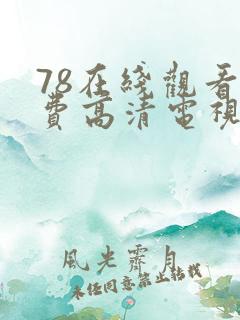 78在线觀看
費高清電視
風光霽月
未经同意禁止转载